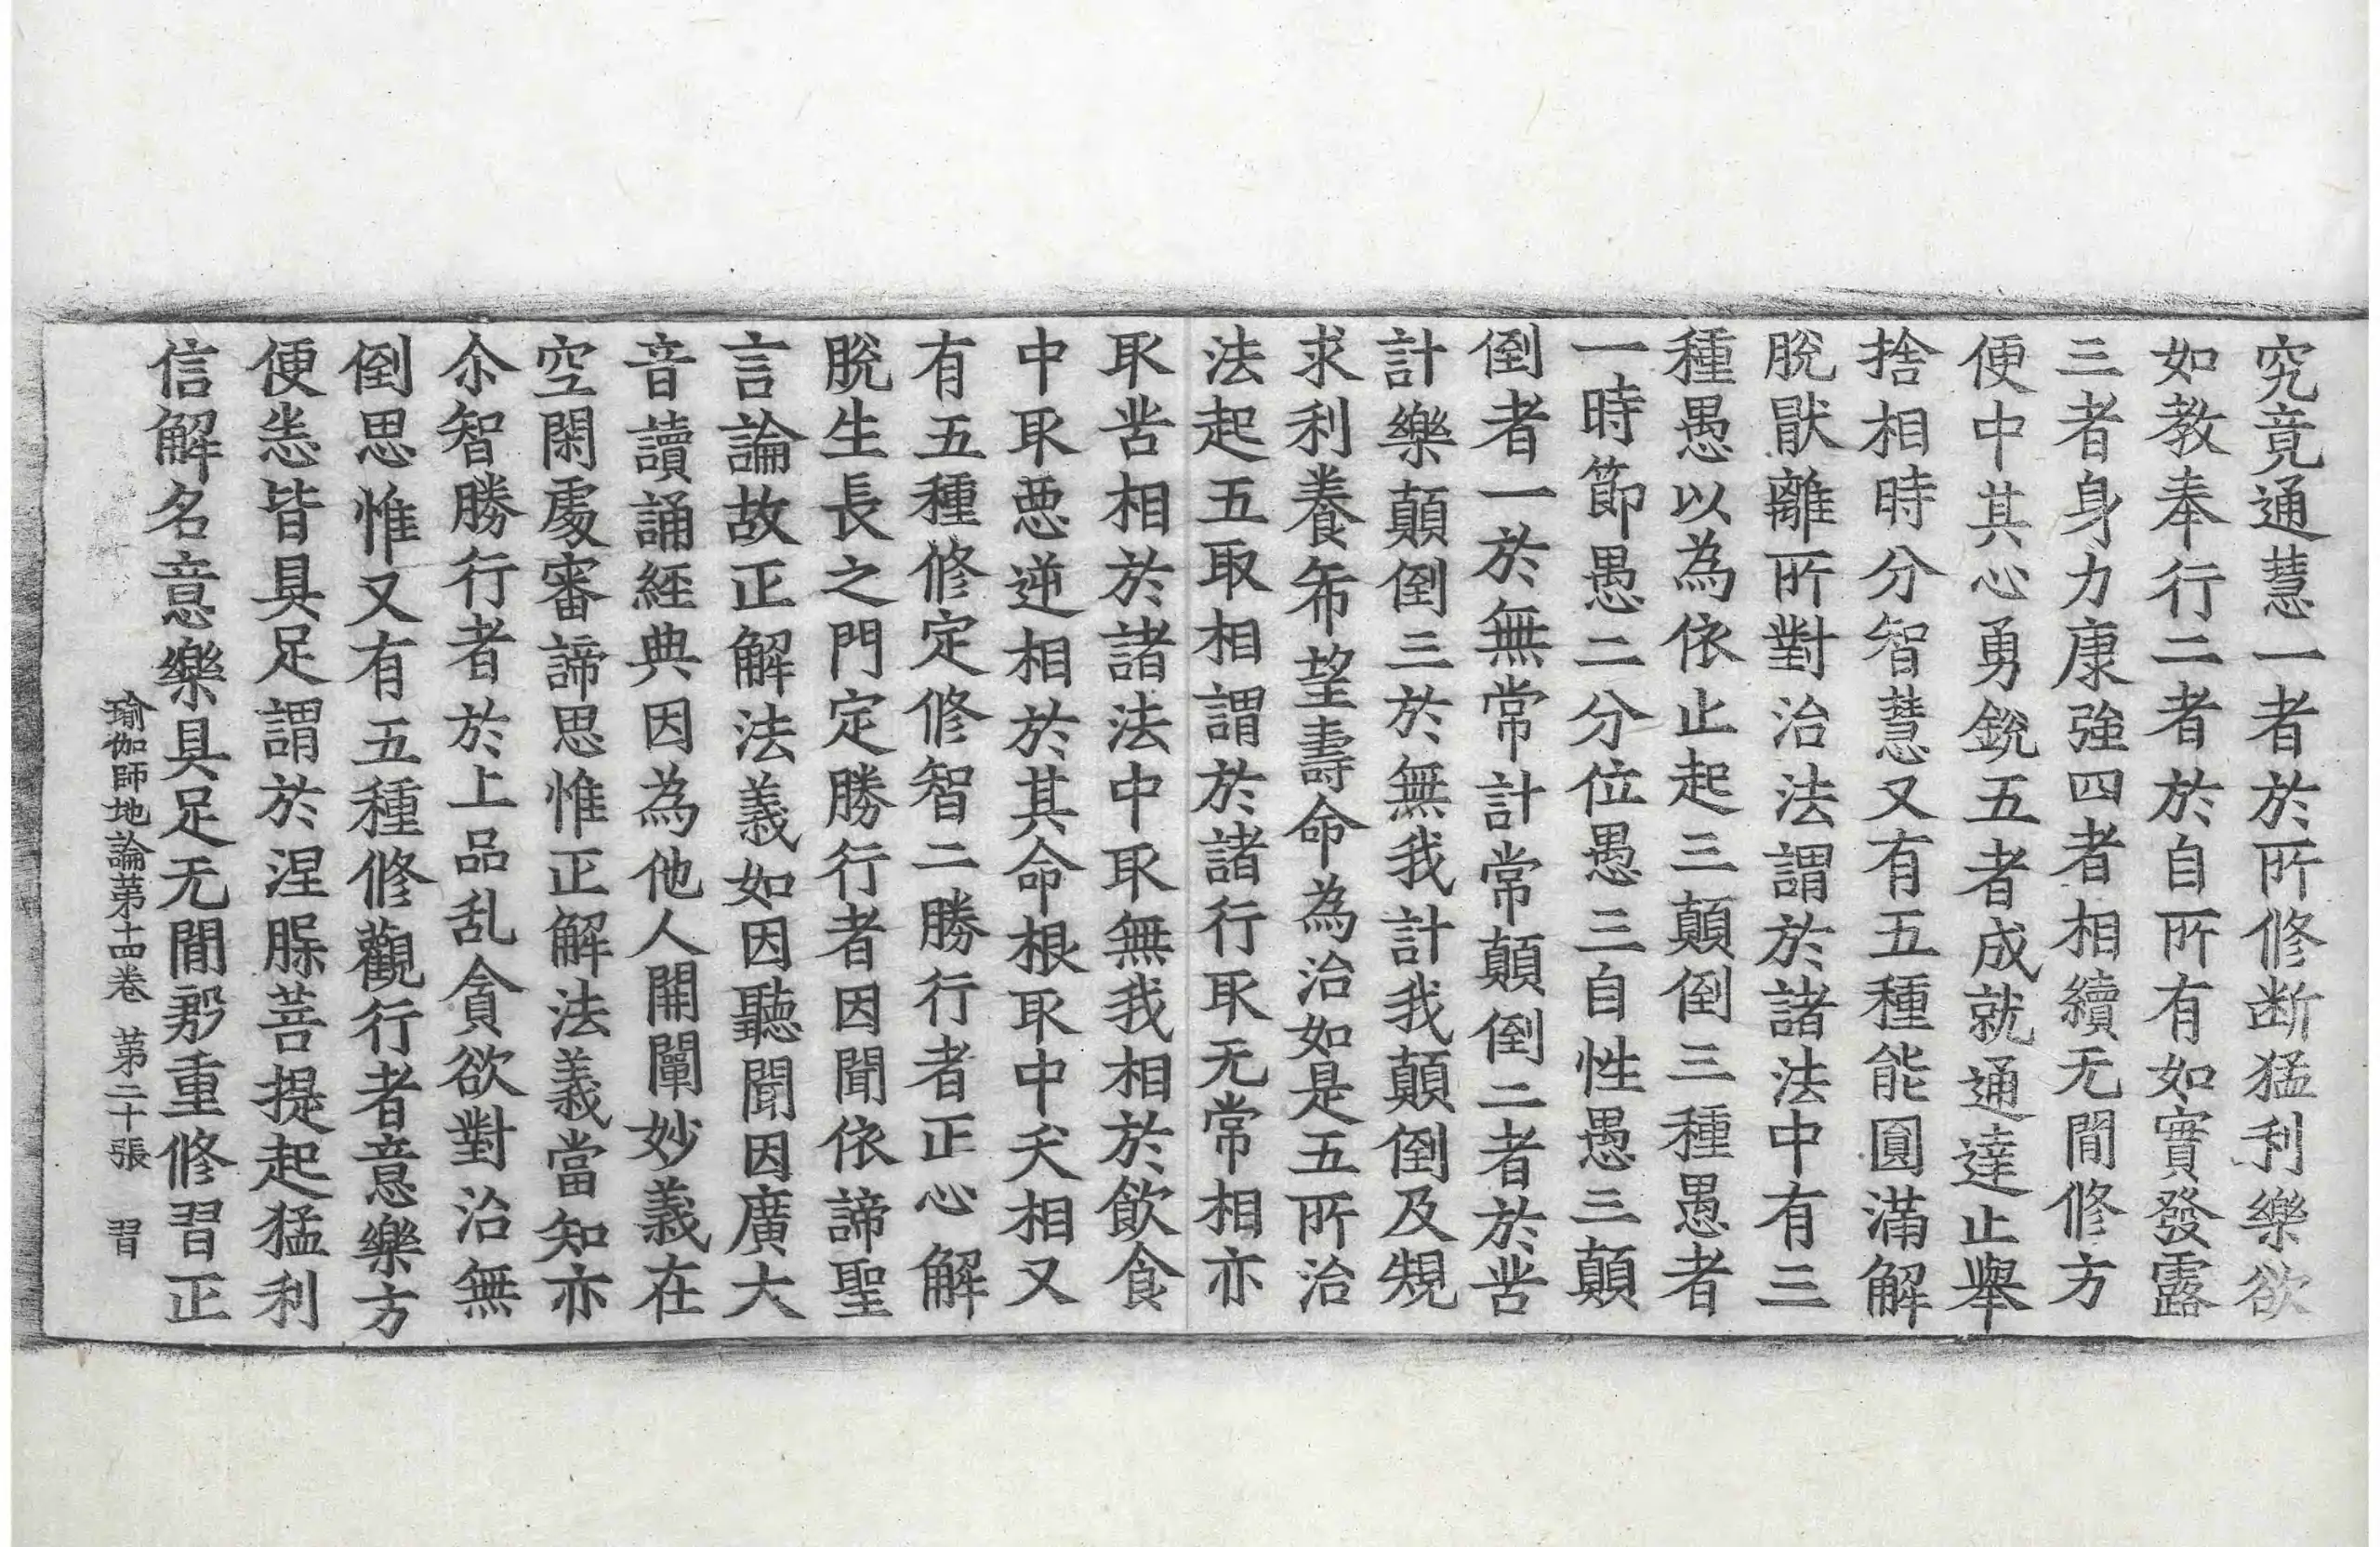 究竟通慧一者於所修断猛利樂欲
如教奉行二者於自所有如實發露
三者身力康強四者相續无閒修方
便中其心勇銳五者成就通達止舉
捨相時分智慧又有五種能圓滿解
脫猒離所對治法謂於諸法中有三
種愚以為依止起三顛倒三種愚者
一時節愚二分位愚三自性愚三顛
倒者一於無常計常顛倒二者於苦
計樂顛倒三於無我計我顛倒及䂓
求利養希望壽命為治如是五所治
法起五取相謂於諸行取无常相亦
取苦相於諸法中取無我相於飲食
中取惡逆相於其命根取中夭相又
有五種修定修智二勝行者正心解
脫生長之門定勝行者因聞依諦聖
言論故正解法義如因聽聞因廣大
音讀誦經典因為他人開闡妙義在
空閑處審諦思惟正解法義當知亦
尒智勝行者於上品乱貪欲對治無
倒思惟又有五種修觀行者意樂方
便恙皆具足謂於涅脲菩提起猛利
信解名意樂具足无閒殷重修習正
瑜伽師地論第十四卷 第二十張 習